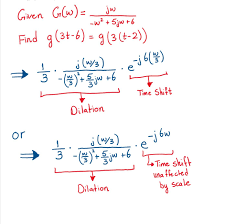 Given G(w) = jw / -w² + 5jw + 6
Find g(3t-6) = g(3(t-2))
⇒ 1/3 · j(w/3) / -(w/3)² + 5/3 jw + 6 · e^-j6(w/3)
Dilation Time Shift
or
⇒ 1/3 · j(w/3) / -(w/3)² + 5/3 jw + 6 · e^-j6w
Dilation Time shift
unaffected
by scale